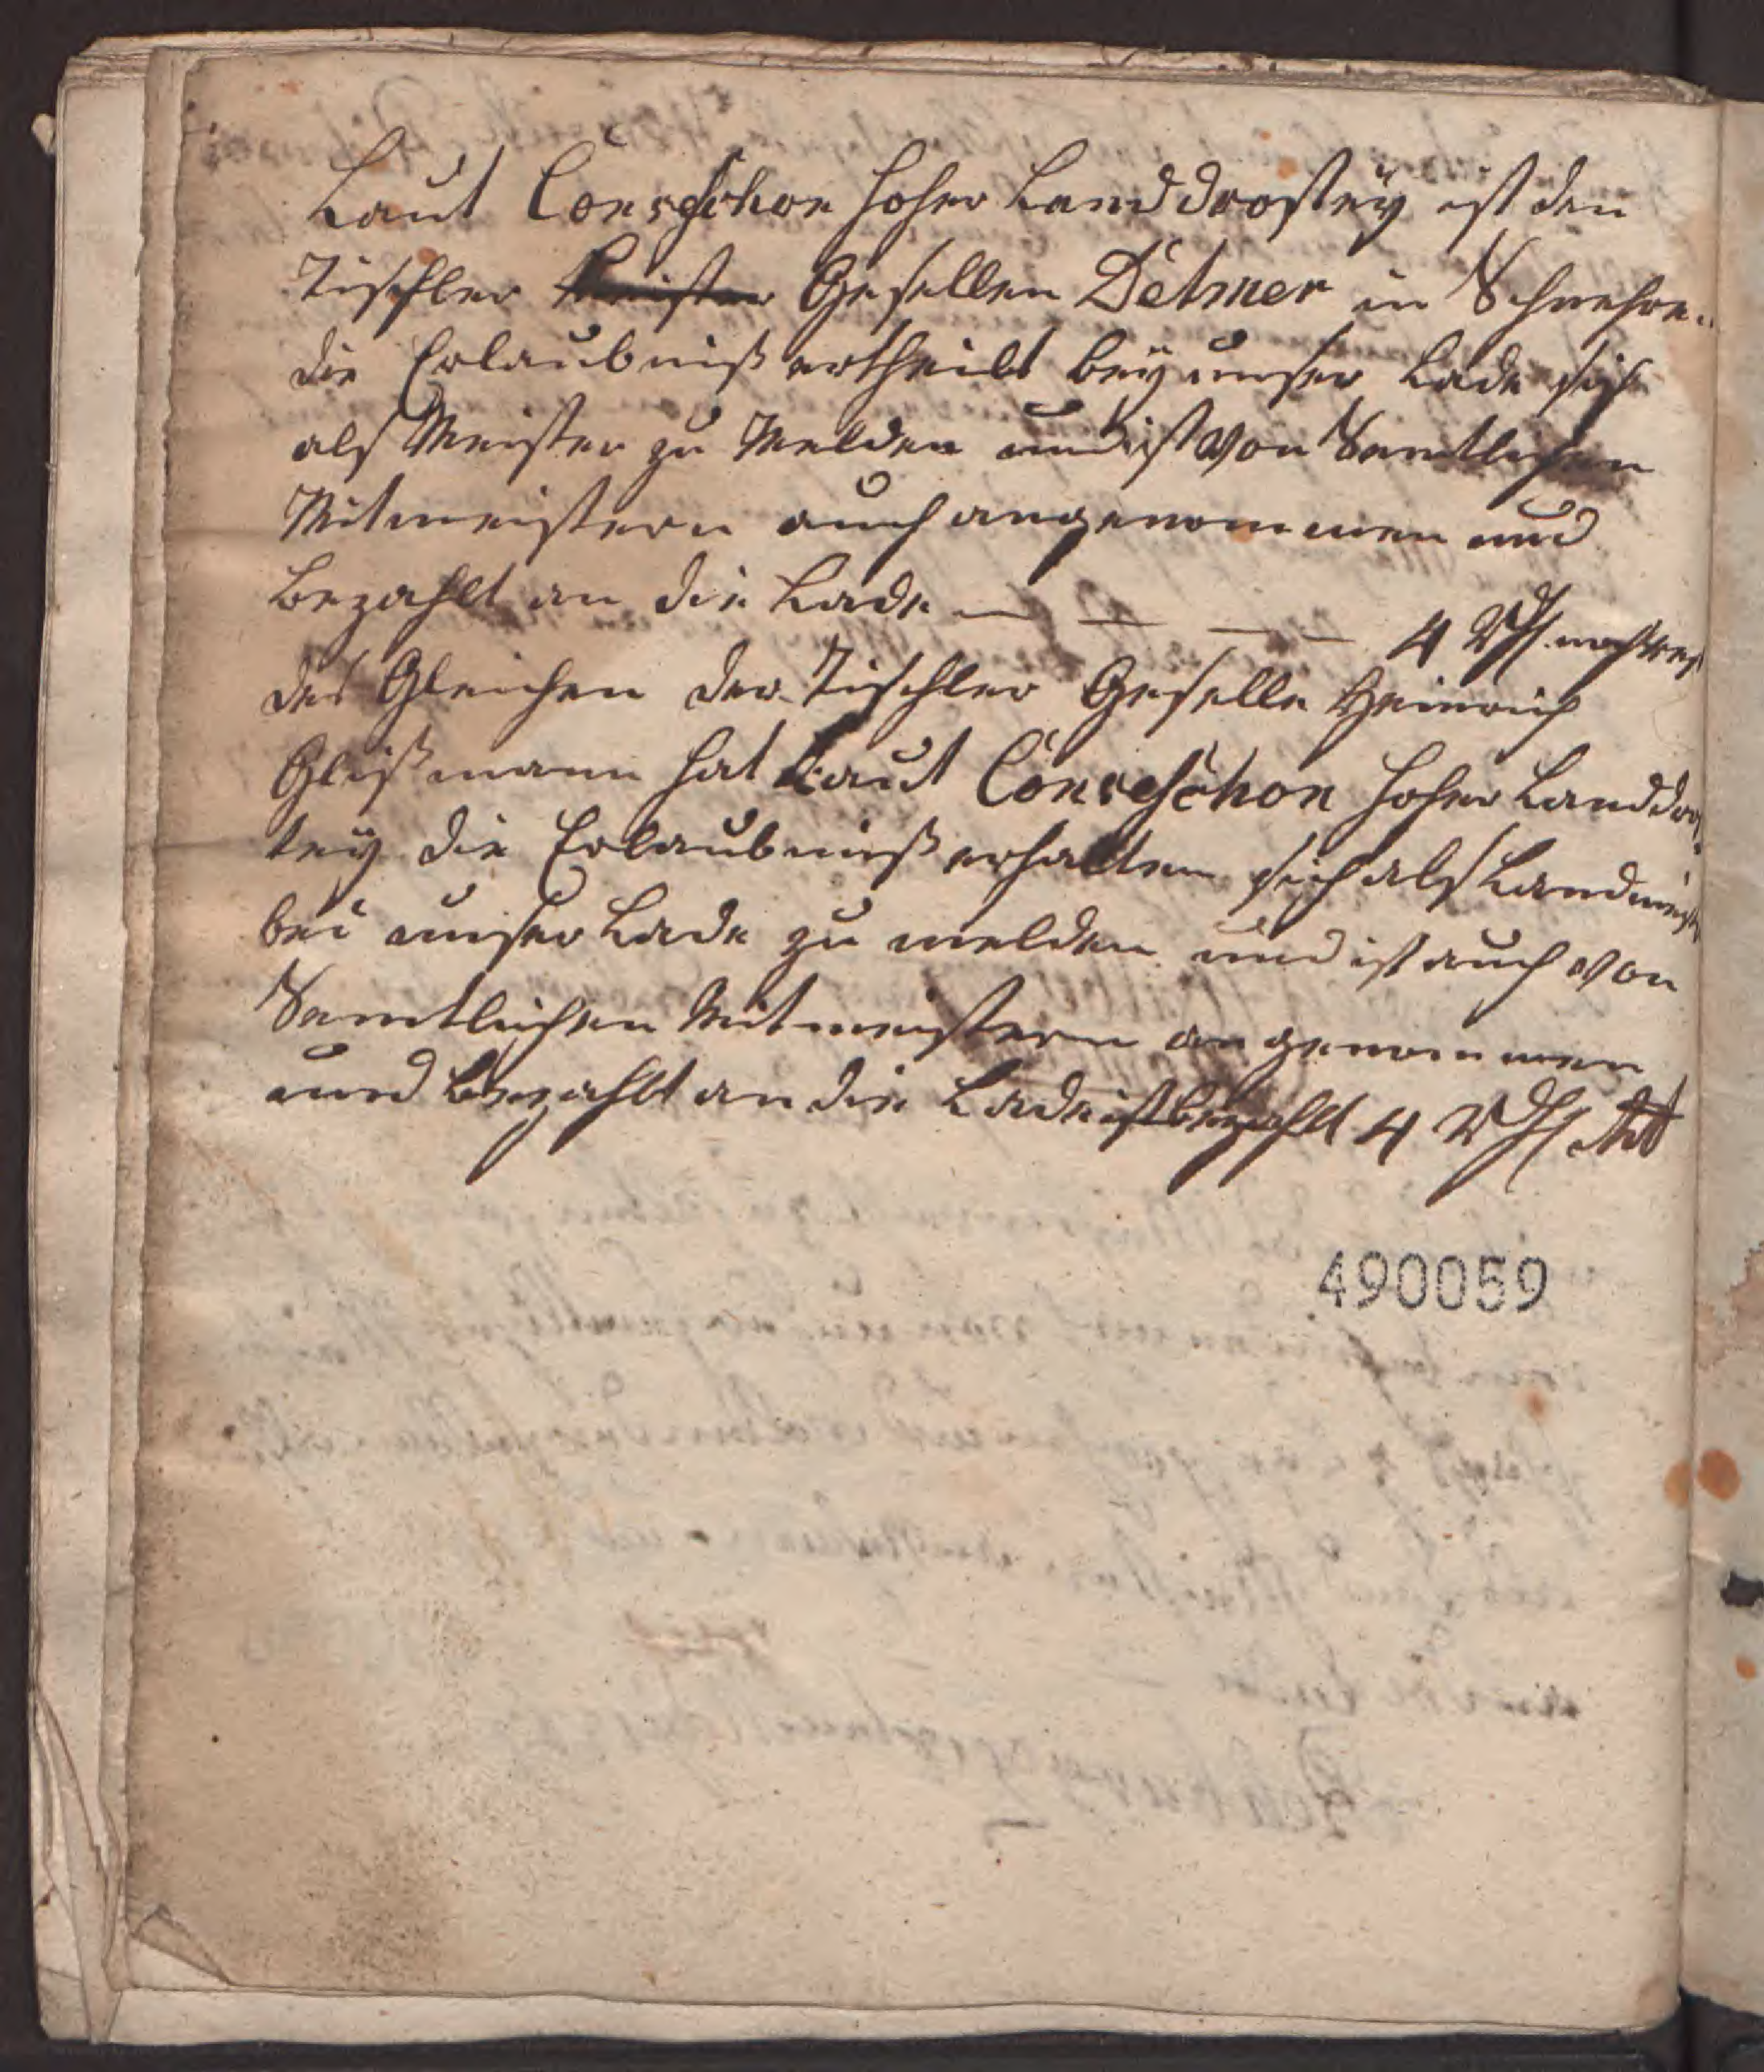 Laut Conseschon hoher Landdrosteÿ ist den
Tischler Meister Gesellen Detmer in
die Erlaubniß ertheilt beÿ unser Lade sich
als Meister zu Melden und ist Von Samtlichen
Mitmeistern auch angenommen und
bezahlt an die Lade — — — — 4 Rthl
des Gleichen der Tischler Geselle Heinrich
Glißmann hat Laut Conseschon hoher Landdros
teÿ die Erlaubniß erhalten sich als Landmeister
bei unser Lade zu melden und ist auch Von
Samtlichen Mitmeistern angenommen
und bezahlt an die Lade ist bezahlt 4 Rthl
490059